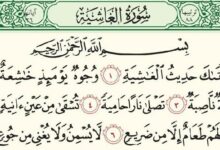 سُورَةُ الْغَاشِيَةِ
بِسْمِ اللَّهِ الرَّحْمَٰنِ الرَّحِيمِ
حَدِيثُ الْغَاشِيَةِ ١ وُجُوهٌ يَوْمَئِذٍ خَاشِعَةٌ
نَّاصِبَةٌ ٣ تَصْلَىٰ نَارًا حَامِيَةً ٤ تُسْقَىٰ مِنْ عَيْنٍ آنِيَةٍ
لَهُمْ طَعَامٌ إِلَّا مِن ضَرِيعٍ ٦ لَّا يُسْمِنُ وَلَا يُغْنِي مِن جُوعٍ